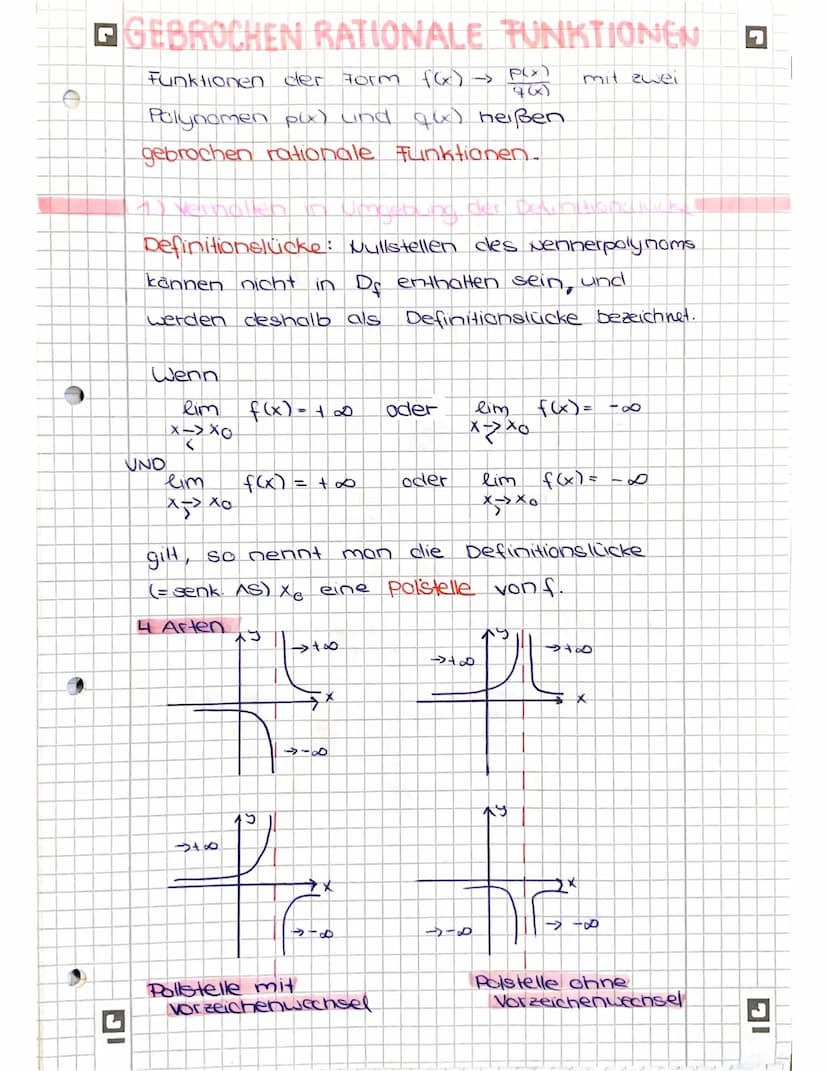 GEBROCHEN RATIONALE FUNKTIONEN
Funktionen der Form f(x) → p(x)/q(x) mit zwei
Polynomen p(x) und q(x) heißen
gebrochen rationale Funktionen.
1) Verhalten in Umgebung der Definitionslücke
Definitionslücke: Nullstellen des Nennerpolynoms
können nicht in Df enthalten sein, und
werden deshalb als Definitionslücke bezeichnet.
Wenn
lim f(x) = +∞ oder lim f(x) = -∞
x→x0 x→x0
< >
UND
lim f(x) = +∞ oder lim f(x) = -∞
x→x0 x→x0
> >
gilt, so nennt man die Definitionslücke
(= senk. AS) x0 eine Polstelle von f.
4 Arten
y →+∞ x →-∞
y →+∞ →+∞ x
y →+∞ x →-∞
y x →-∞ →-∞
Pollstelle mit
Vorzeichenwechsel
Polstelle ohne
Vorzeichenwechsel